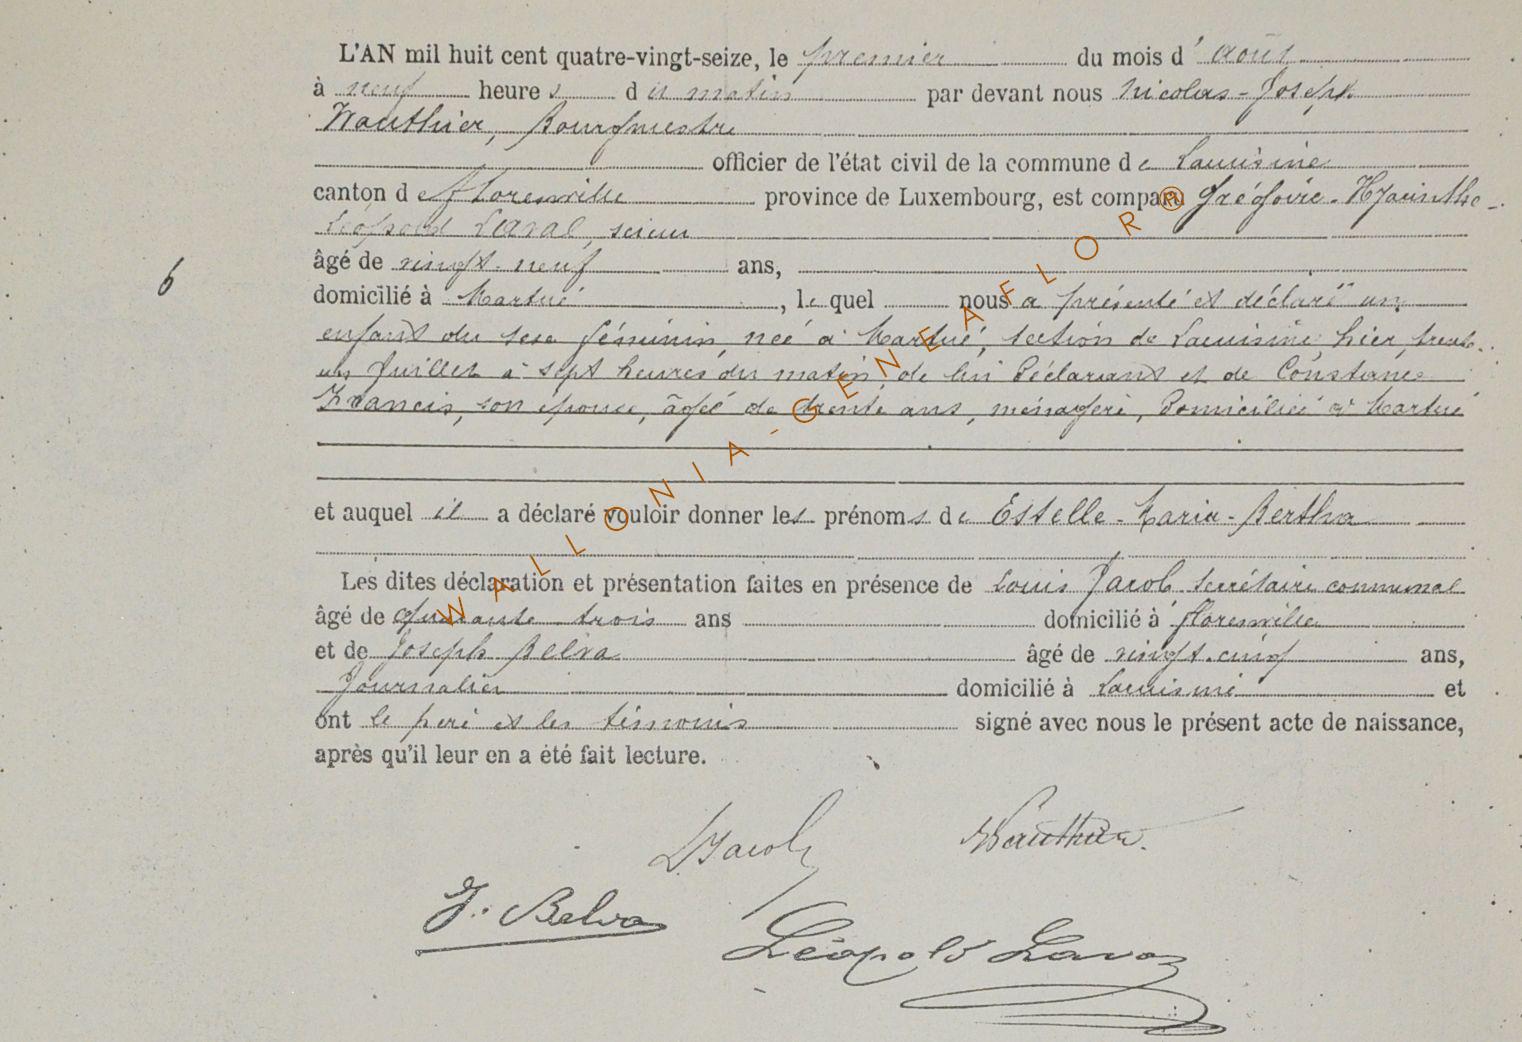 L'AN mil huit cent quatre-vingt-seize, le premier du mois d'août
à neuf heures du matin par devant nous Nicolas-Joseph
Wauthier, Bourgmestre
officier de l'état civil de la commune de Lacuisine
canton de Florenville province de Luxembourg, est comparu Grégoire-Hyacinthe-
Léopold Laval, scieur
âgé de vingt-neuf ans,
6
domicilié à Martué, lequel nous a présenté et déclaré un
enfant du sexe féminin, née à Martué, section de Lacuisine, hier, trente-
un Juillet à sept heures du matin, de lui Déclarant et de Constance
Francis, son épouse, âgée de trente ans, ménagère, Domiciliée à Martué
et auquel il a déclaré vouloir donner les prénoms de Estelle-Maria-Bertha
Les dites déclaration et présentation faites en présence de Louis Jacob secrétaire communal
âgé de quarante trois ans domicilié à florenville
et de Joseph Belva âgé de vingt-cinq ans,
Journalier domicilié à Lacuisine et
ont le père et les témoins signé avec nous le présent acte de naissance,
après qu'il leur en a été fait lecture.
LJacob Wauthier.
J. Belva
Léopold Laval
WALLONIA-GENEAFLOR®